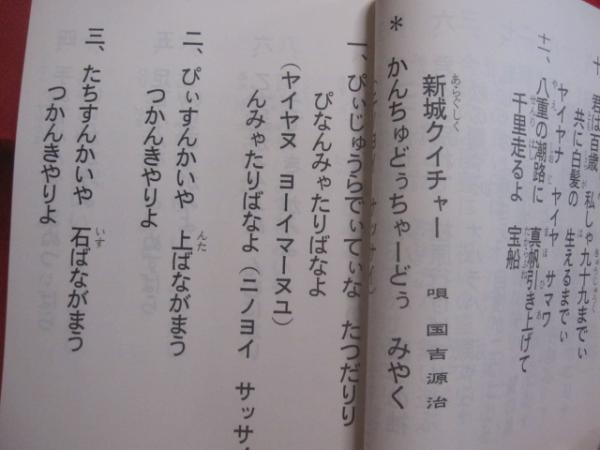 十、君は百歳 私しゃ九十九までい
共に白髪の 生えるまでい
ヤイヤナ ヤイヤ サマワ
十一、八重の潮路に 真帆引き上げて
千里走るよ 宝船
新城クイチャー 唄 国吉源治
＊ かんちゅどぅちゃーどぅ みやく
一、ぴぃじゅうらでぃてぃな たつだりり
ぴなんみゃたりばなよ
(ヤイヤヌ ヨーイマーヌユ)
んみゃたりばなよ (ニノヨイ サッサイ
二、ぴぃすんかいや 上ばながまう
つかんきやりよ
三、たちすんかいや 石ばながまう
つかんきやりよ